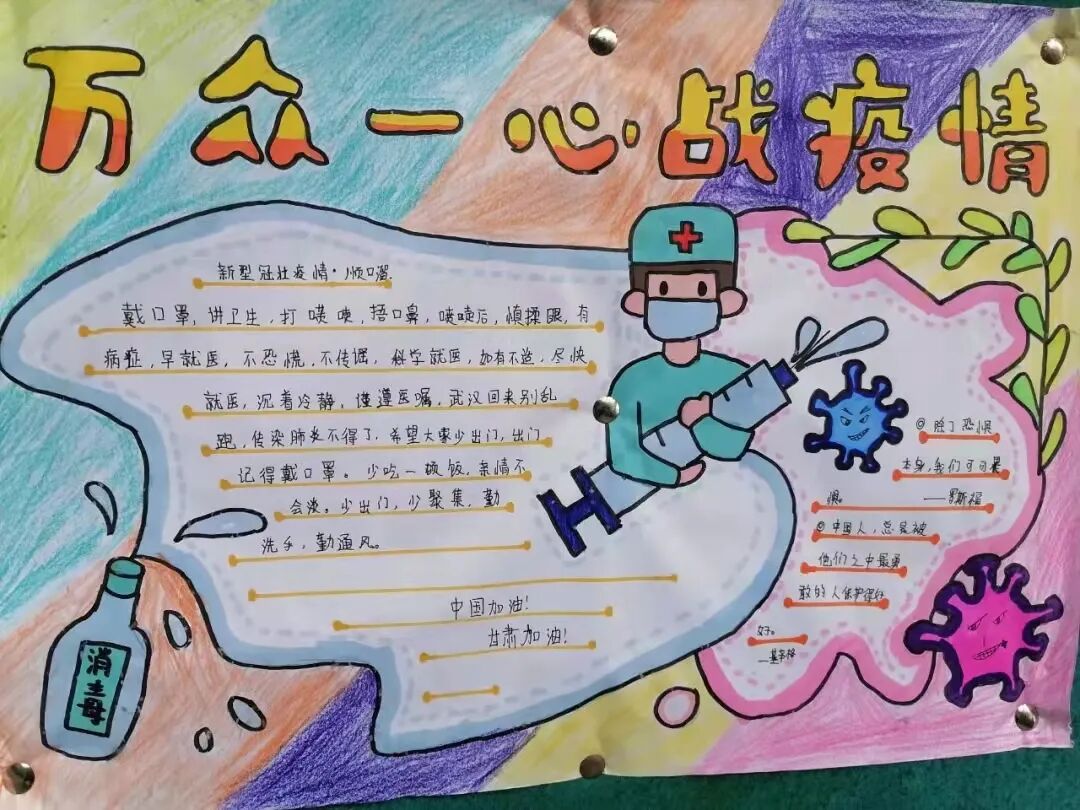 万众一心战疫情
新型冠壮疫情·顺口溜.
戴口罩,讲卫生,打喷嚏,捂口鼻,喷嚏后,慎揉眼,有
病症,早就医,不恐慌,不传谣,科学就医,如有不适,尽快
就医,沉着冷静,谨遵医嘱,武汉回来别乱
跑,传染肺炎不得了,希望大家少出门,出门
记得戴口罩。少吃一顿饭,亲情不
会淡。少出门,少聚集,勤
洗手,勤通风。
中国加油!
甘肃加油!
消毒
◎除了恐惧
本身,我们无可畏
惧。
——罗斯福
◎中国人,总是被
他们之中最勇
敢的人保护得很
好。
—基辛格